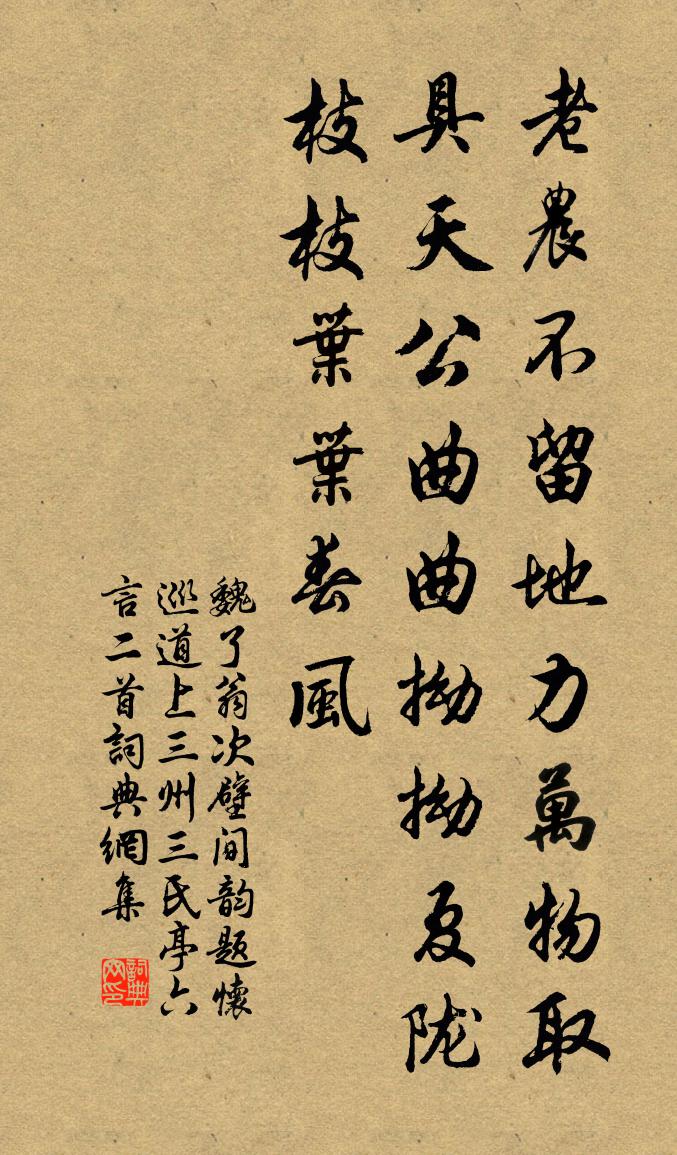 老農不留地力萬物取
具天公曲曲拗拗夏陇
枝枝葉葉春風
魏了翁次壁间韵題懷
巡道上三州三氏亭六
言二首詞典網集
詞典网印